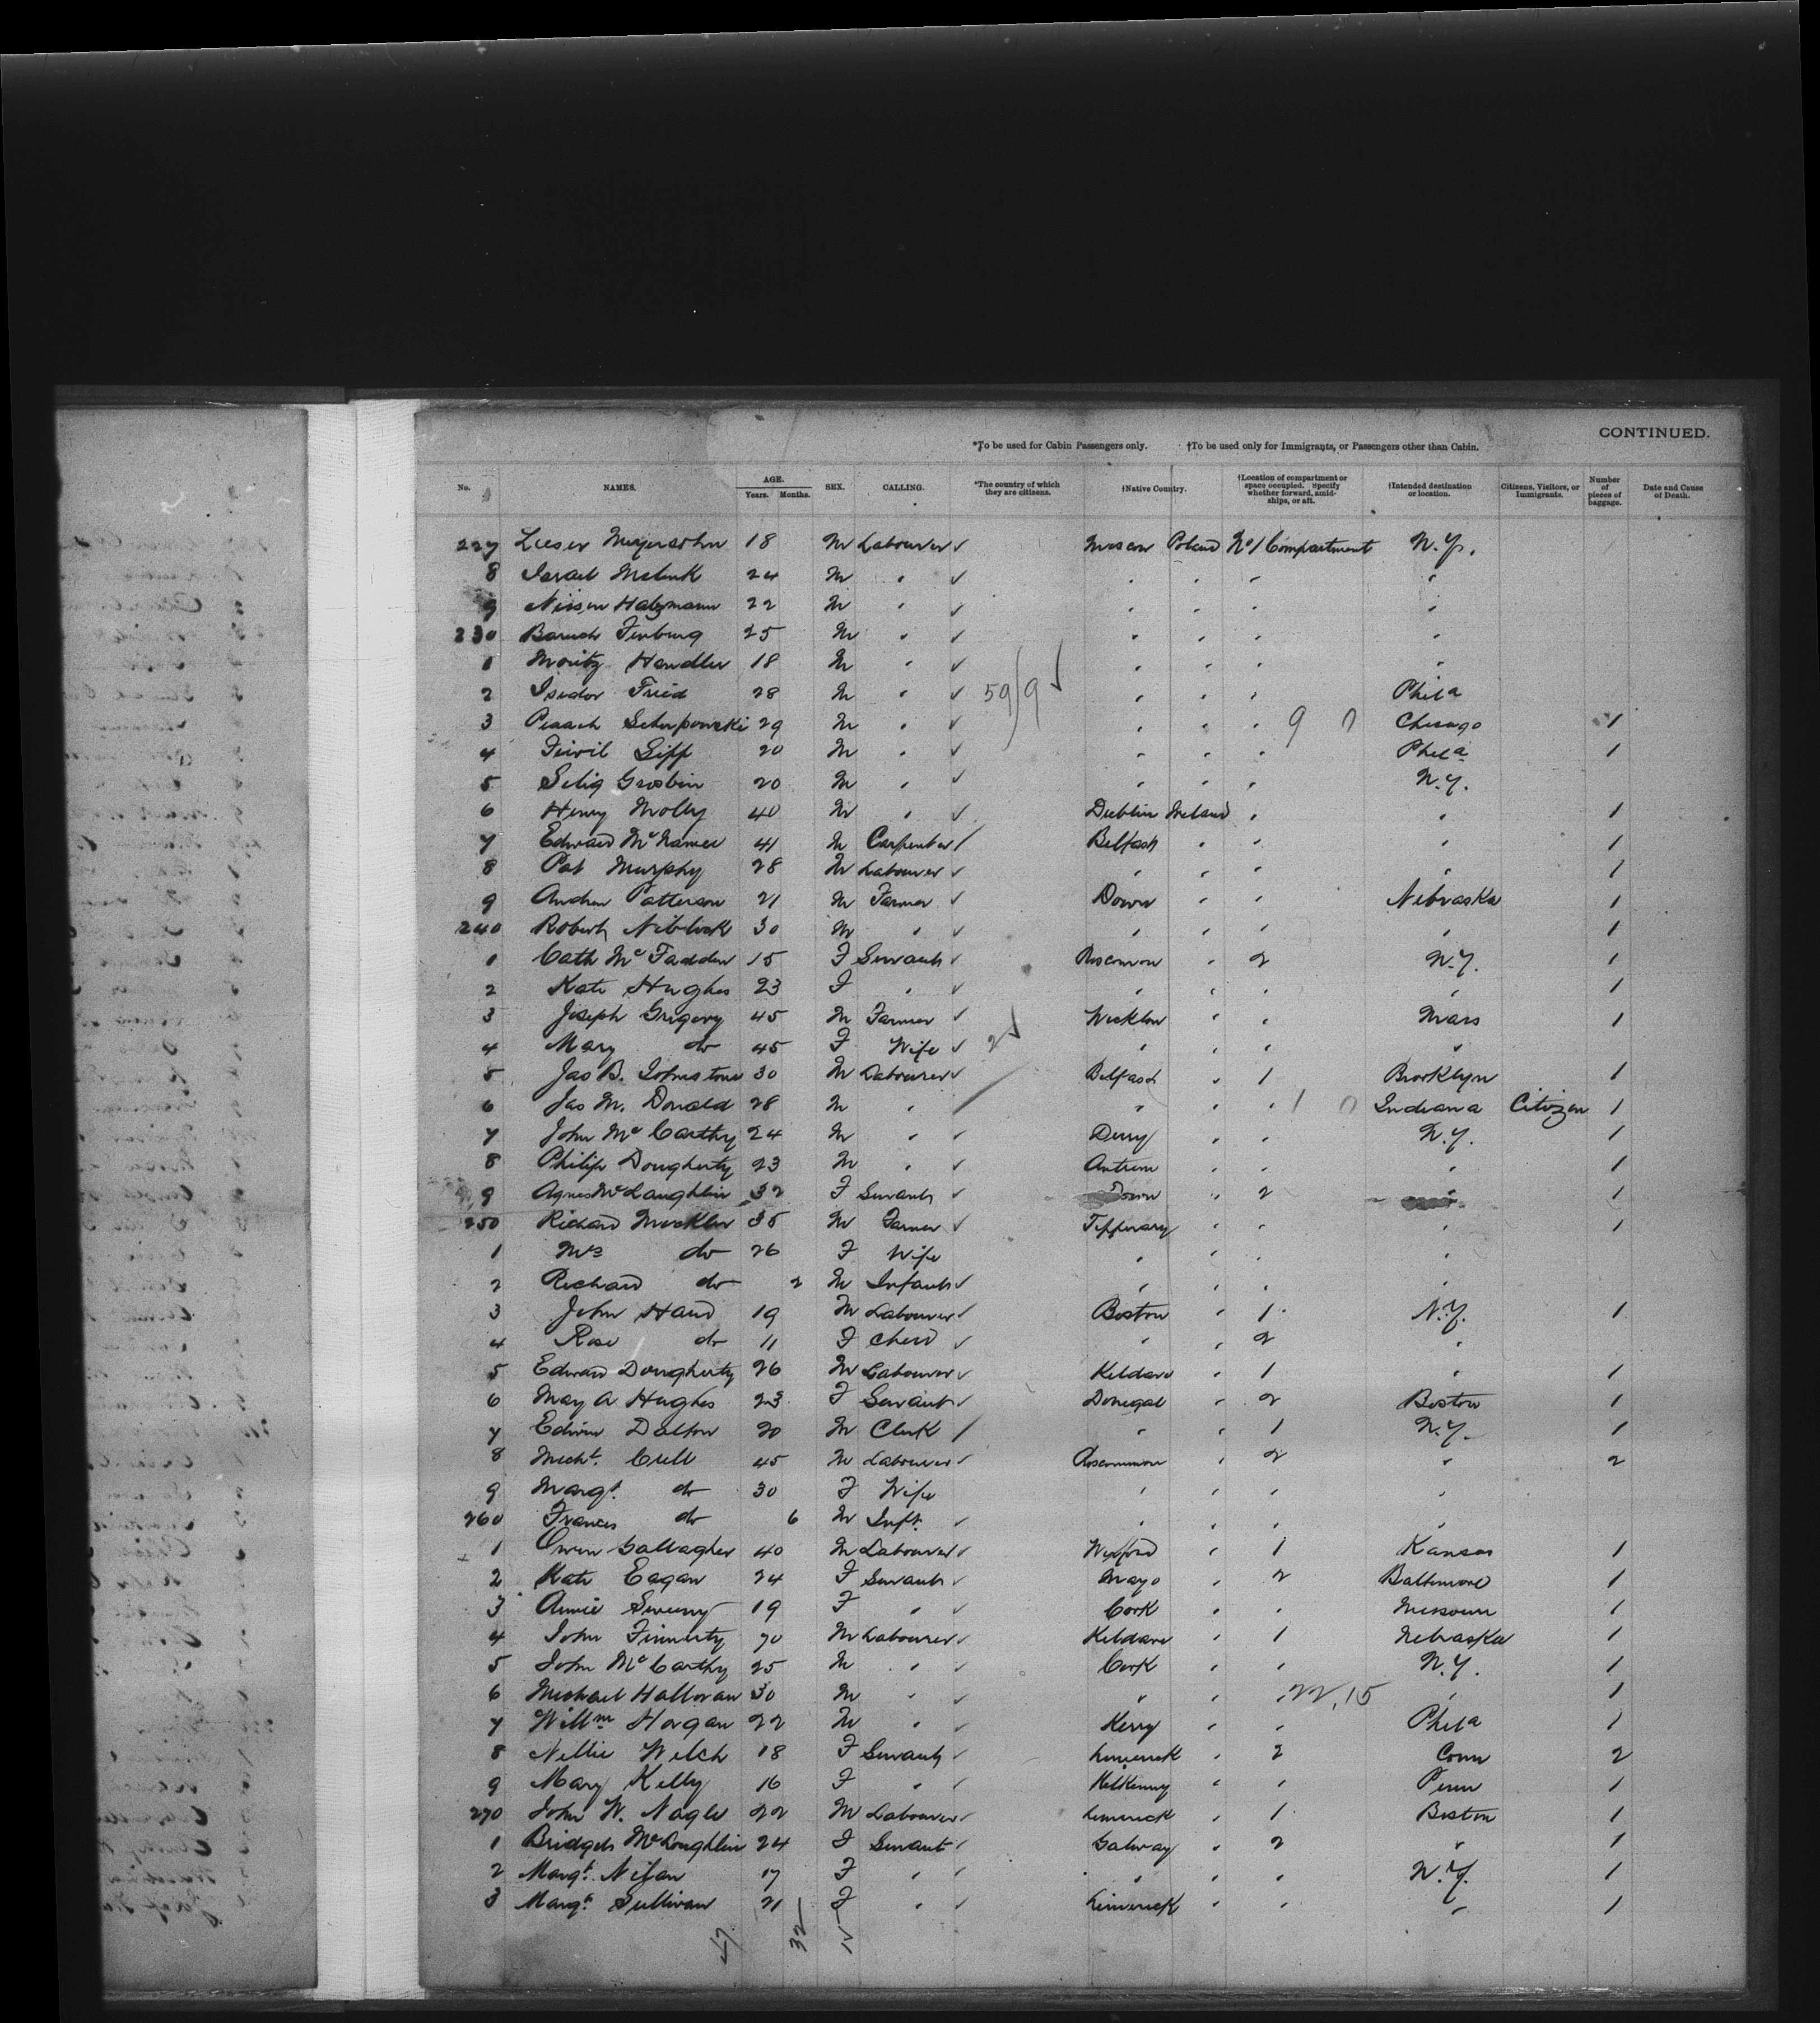 CONTINUED.
*To be used for Cabin Passengers only. †To be used only for Immigrants, or Passengers other than Cabin.
No. NAMES. AGE. Years. Months. SEX. CALLING. *The country of which they are citizens. †Native Country. †Location of compartment or space occupied. Specify whether forward, amidships, or aft. †Intended destination or location. Citizens, Visitors, or Immigrants. Number of pieces of baggage. Date and Cause of Death.
227 18 M Labourer ✓ Poland No 1 Compartment N.Y.
8 Israel 24 M " ✓ " " " "
9 22 M " ✓ " " " "
230 Baruch 25 M " ✓ " " " "
1 Moritz Handler 18 M " ✓ " " " "
2 Isidor Fried 28 M " ✓ 59/9 ✓ " " " Phila
3 29 M " ✓ " " " 9 0 Chicago 1
4 20 M " ✓ " " " Phila 1
5 Selig 20 M " ✓ " " " N.Y.
6 Henry Molly 40 M " ✓ Dublin Ireland " " 1
7 Edward McNamee 41 M Carpenter / Belfast " " " 1
8 Pat Murphy 28 M Labourer ✓ " " " " 1
9 Andrew Patterson 21 M Farmer ✓ Down " " Nebraska 1
240 Robert Niblock 30 M " ✓ " " " " 1
1 Cath McFadden 15 F Servant ✓ " 2 N.Y. 1
2 Kate Hughes 23 F " ✓ " " " " 1
3 Joseph Gregory 45 M Farmer ✓ Wicklow " " Mass 1
4 Mary do 45 F Wife ✓ 2 ✓ " " " "
5 Jas B. Johnstone 30 M Labourer ✓ Belfast " 1 Brooklyn 1
6 Jas M. Donald 28 M " / " " " 1 0 Indiana Citizen 1
7 John McCarthy 24 M " ✓ Derry " " N.Y. 1
8 Philip Dougherty 23 M " ✓ Antrim " " " 1
9 Agnes McLaughlin 32 F Servant ✓ Down " 2 " 1
250 Richard Mockler 35 M Farmer ✓ Tipperary " " " 1
1 Mrs do 26 F Wife " " " "
2 Richard do 2 M Infant ✓ " " " "
3 John Hand 19 M Labourer ✓ Boston " 1 N.Y. 1
4 Rose do 11 F Child ✓ " " 2 "
5 Edward Dougherty 26 M Labourer ✓ Kildare " 1 " 1
6 May A Hughes 23 F Servant ✓ Donegal " 2 Boston 1
7 Edwin Dalton 20 M Clerk / " " 1 N.Y. 1
8 Michl. 45 M Labourer ✓ Roscommon " 2 " 2
9 Margt. do 30 F Wife " " " "
260 Frances do 6 M Inft. ✓ " " " "
1 Owen Gallagher 40 M Labourer ✓ Wexford " 1 Kansas 1
2 Kate Eagan 24 F Servant ✓ Mayo " 2 Baltimore 1
3 Annie Sweeny 19 F " ✓ Cork " " Missouri 1
4 John Finnerty 70 M Labourer ✓ Kildare " 1 Nebraska 1
5 John McCarthy 25 M " ✓ Cork " " N.Y. 1
6 Michael Halloran 30 M " ✓ " " " 22.15 " 1
7 Willm Horgan 22 M " ✓ Kerry " " Phila 1
8 Nellie Welch 18 F Servant ✓ Limerick " 2 Conn 2
9 Mary Kelly 16 F " ✓ Kilkenny " " Penn 1
270 John W. Nagle 22 M Labourer ✓ Limerick " 1 Boston 1
1 Bridget McLoughlin 24 F Servant ✓ Galway " 2 " 1
2 Margt. 17 F " ✓ " " " N.Y. 1
3 Margt. Sullivan 21 F " ✓ Limerick " " " 1
47 32 15